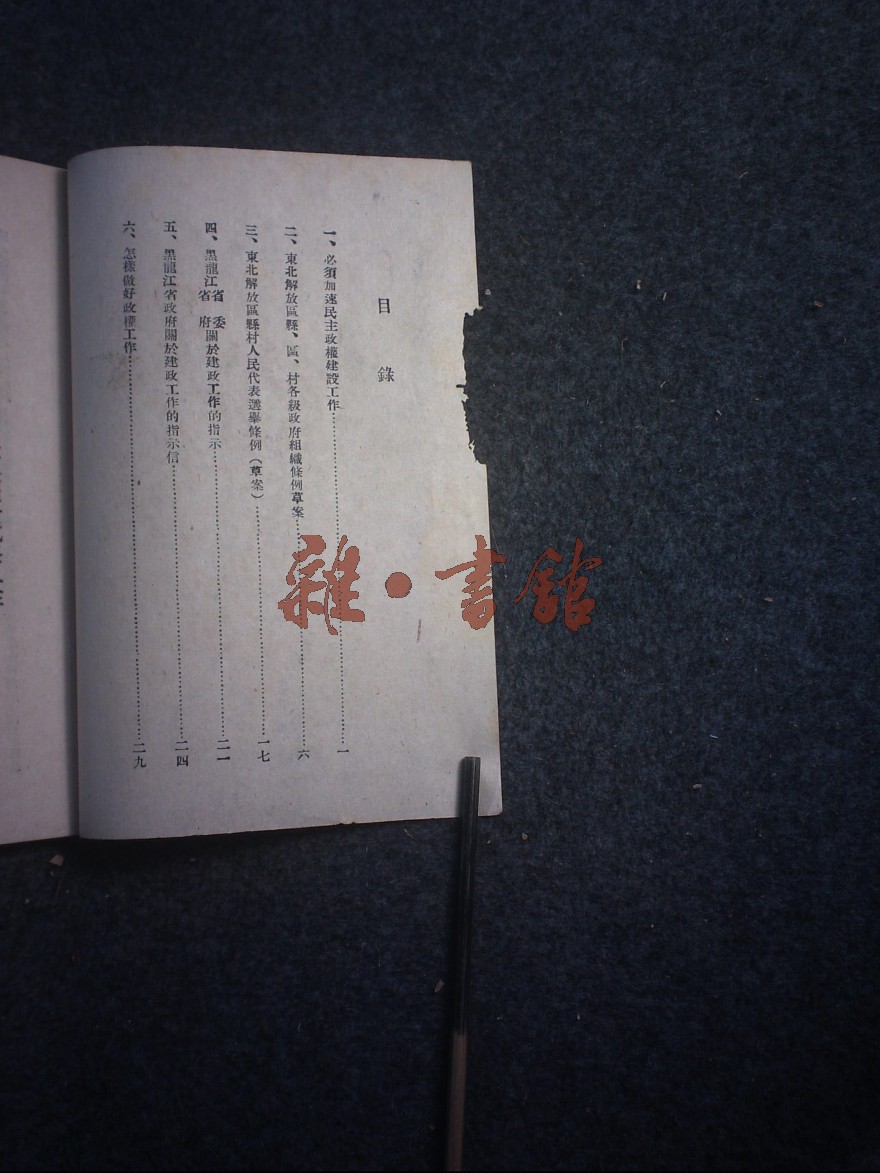 目錄
一、必須加速民主政權建設工作……一
二、東北解放區縣、區、村各級政府組織條例草案……六
三、東北解放區縣村人民代表選舉條例（草案）……一七
四、黑龍江省委
省府關於建政工作的指示……二一
五、黑龍江省政府關於建政工作的指示信……二四
六、怎樣做好政權工作……二九
雜·書館